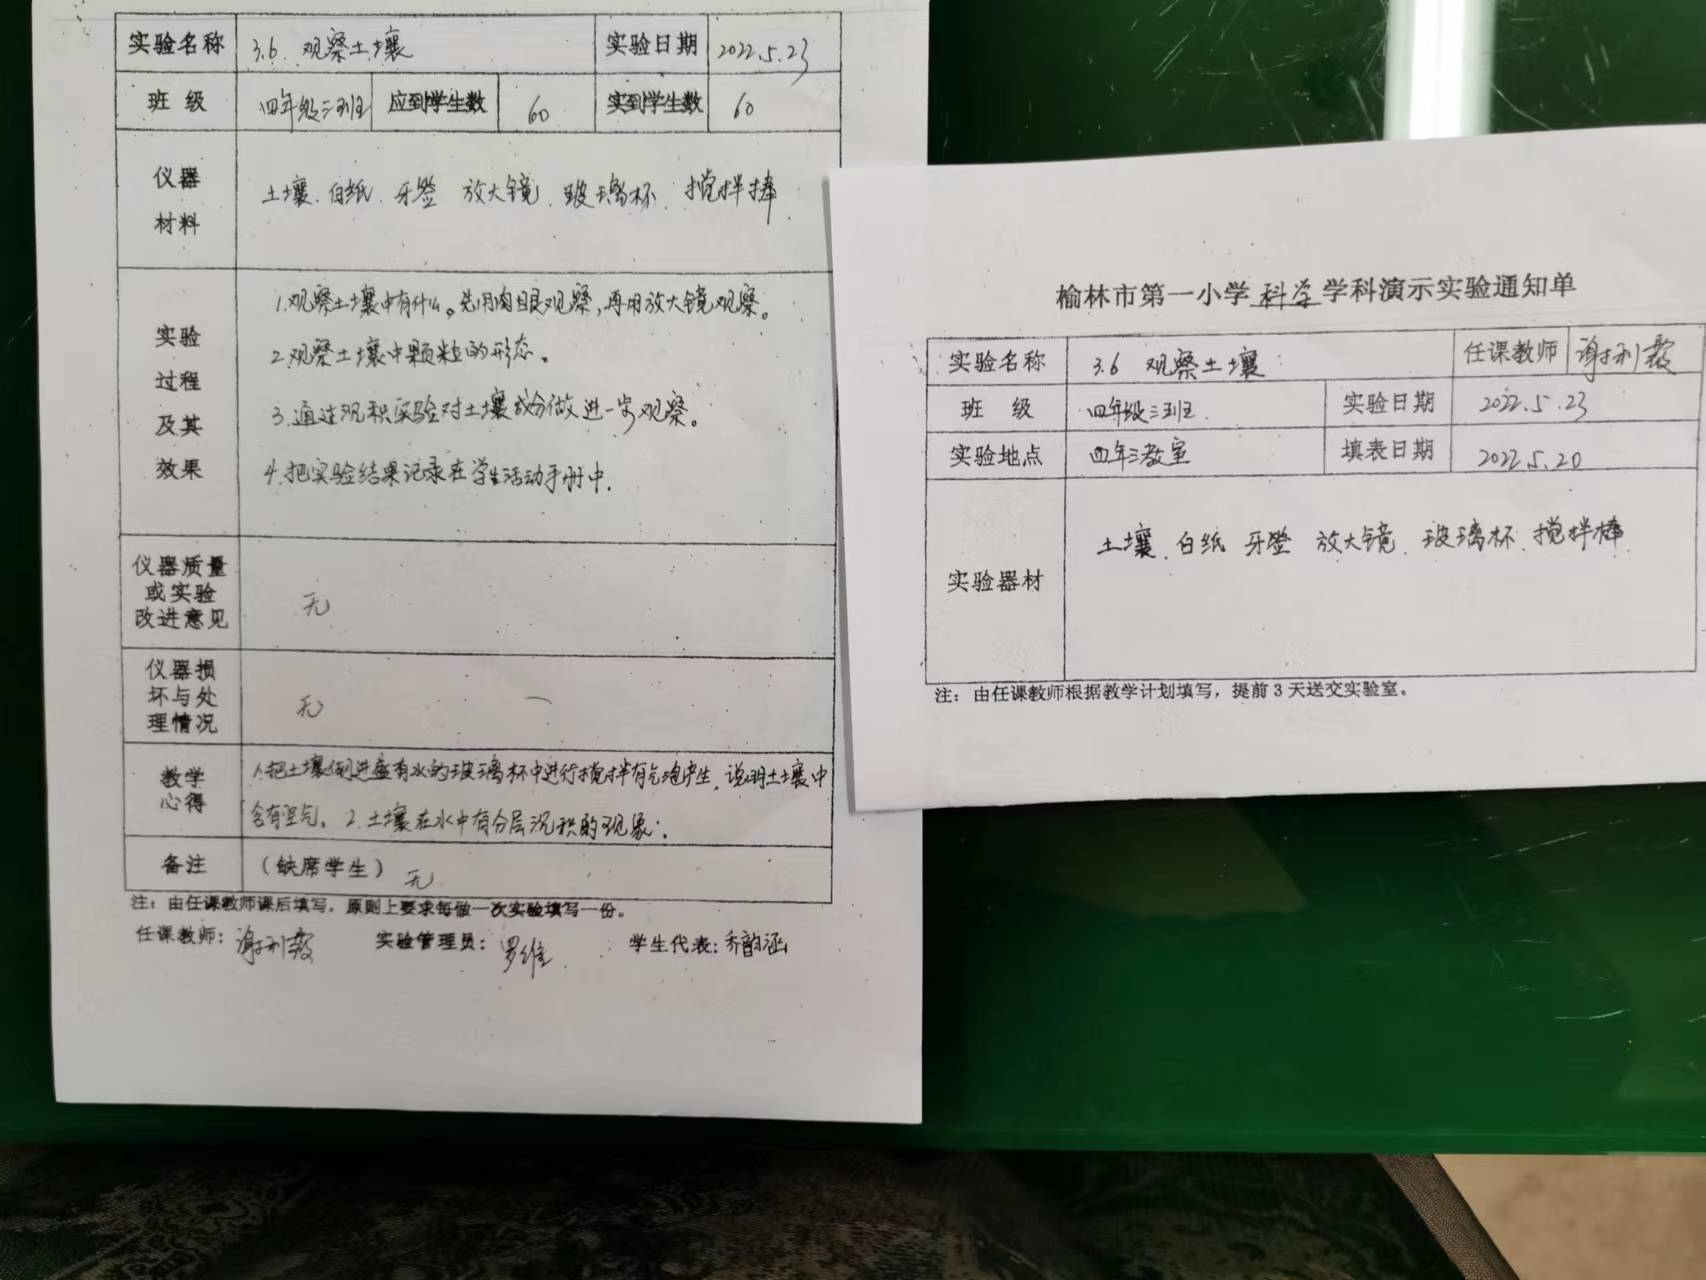 实验名称 3.6. 观察土壤 实验日期 2022.5.23
班 级 四年级三班 应到学生数 60 实到学生数 60
仪器
材料
土壤、白纸、牙签 放大镜、玻璃杯、搅拌棒
实验
过程
及其
效果
1.观察土壤中有什么。先用肉眼观察,再用放大镜观察。
2.观察土壤中颗粒的形态。
3.通过沉积实验对土壤成分做进一步观察。
4.把实验结果记录在学生活动手册中.
仪器质量
或实验
改进意见
无
仪器损
坏与处
理情况
无
教学
心得
1.把土壤倒进盛有水的玻璃杯中进行搅拌有气泡产生,说明土壤中
含有空气。2.土壤在水中有分层沉积的现象.
备注 (缺席学生) 无
注:由任课教师课后填写,原则上要求每做一次实验填写一份。
任课教师:谢利霞 实验管理员:罗维 学生代表:乔韵涵
榆林市第一小学 科学 学科演示实验通知单
实验名称 3.6 观察土壤 任课教师 谢利霞
班 级 四年级三班. 实验日期 2022.5.23
实验地点 四年三教室 填表日期 2022.5.20
实验器材
土壤、白纸 牙签 放大镜、玻璃杯、搅拌棒
注:由任课教师根据教学计划填写,提前 3 天送交实验室。